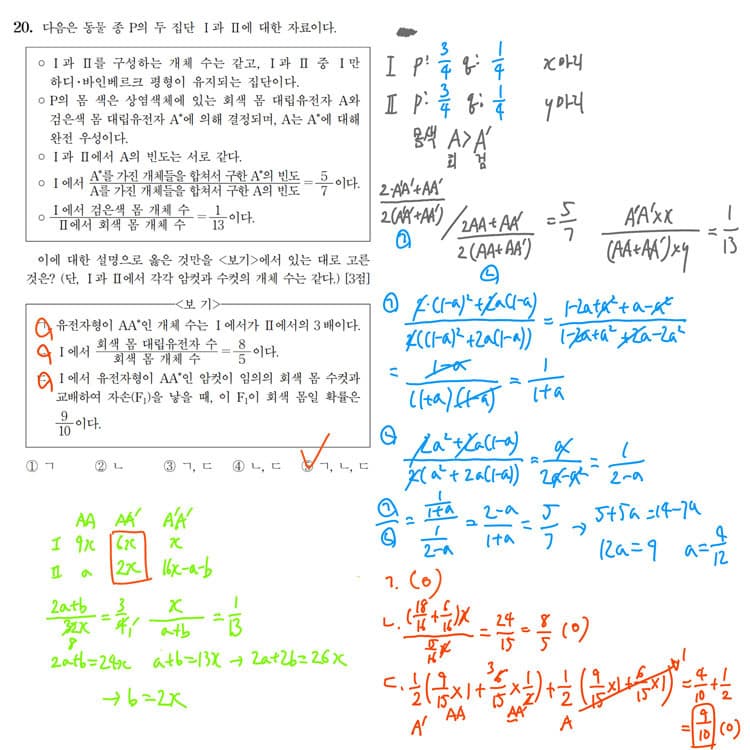 20. 다음은 동물 종 P의 두 집단 Ⅰ과 Ⅱ에 대한 자료이다.
○ Ⅰ과 Ⅱ를 구성하는 개체 수는 같고, Ⅰ과 Ⅱ 중 Ⅰ만
하디·바인베르크 평형이 유지되는 집단이다.
○ P의 몸 색은 상염색체에 있는 회색 몸 대립유전자 A와
검은색 몸 대립유전자 A*에 의해 결정되며, A는 A*에 대해
완전 우성이다.
○ Ⅰ과 Ⅱ에서 A의 빈도는 서로 같다.
○ Ⅰ에서 A*를 가진 개체들을 합쳐서 구한 A*의 빈도 / A를 가진 개체들을 합쳐서 구한 A의 빈도 = 5/7 이다.
○ Ⅰ에서 검은색 몸 개체 수 / Ⅱ에서 회색 몸 개체 수 = 1/13 이다.
이에 대한 설명으로 옳은 것만을 <보기>에서 있는 대로 고른
것은? (단, Ⅰ과 Ⅱ에서 각각 암컷과 수컷의 개체 수는 같다.) [3점]
<보 기>
ㄱ. 유전자형이 AA*인 개체 수는 Ⅰ에서가 Ⅱ에서의 3배이다.
ㄴ. Ⅰ에서 회색 몸 대립유전자 수 / 회색 몸 개체 수 = 8/5 이다.
ㄷ. Ⅰ에서 유전자형이 AA*인 암컷이 임의의 회색 몸 수컷과
교배하여 자손(F₁)을 낳을 때, 이 F₁이 회색 몸일 확률은
9/10 이다.
① ㄱ ② ㄴ ③ ㄱ, ㄷ ④ ㄴ, ㄷ ⑤ ㄱ, ㄴ, ㄷ
AA AA' A'A'
Ⅰ 9x 6x x
Ⅱ a 2x 16x-a-b
(2a+b)/32x = 3/4 x/(a+b) = 1/13
8 1
2a+b=24x a+b=13x → 2a+2b=26x
→ b=2x
Ⅰ p: 3/4 q: 1/4 x마리
Ⅱ p: 3/4 q: 1/4 y마리
몸색 A>A'
회 검
(2·A'A'+AA')/2(A'A'+AA') / (2AA+AA')/2(AA+AA') = 5/7 A'A'×x/(AA+AA')×y = 1/13
㉠ ㉡
㉠ (2·(1-a)²+2a(1-a))/2((1-a)²+2a(1-a)) = (1-2a+a²+a-a²)/(1-2a+a²+2a-2a²)
= (1-a)/(1+a)(1-a) = 1/(1+a)
㉡ (2a²+2a(1-a))/2(a²+2a(1-a)) = a/(2a-a²) = 1/(2-a)
㉠/㉡ = (1/(1+a))/(1/(2-a)) = (2-a)/(1+a) = 5/7 → 5+5a=14-7a
12a=9 a=9/12
ㄱ. (O)
ㄴ. (18/16+6/16)x / (15/16)x = 24/15 = 8/5 (O)
ㄷ. 1/2(9/15×1+6/15×1/2)+1/2(9/15×1+6/15×1) = 4/10+1/2
3 1
A' AA AA' A
= 9/10 (O)